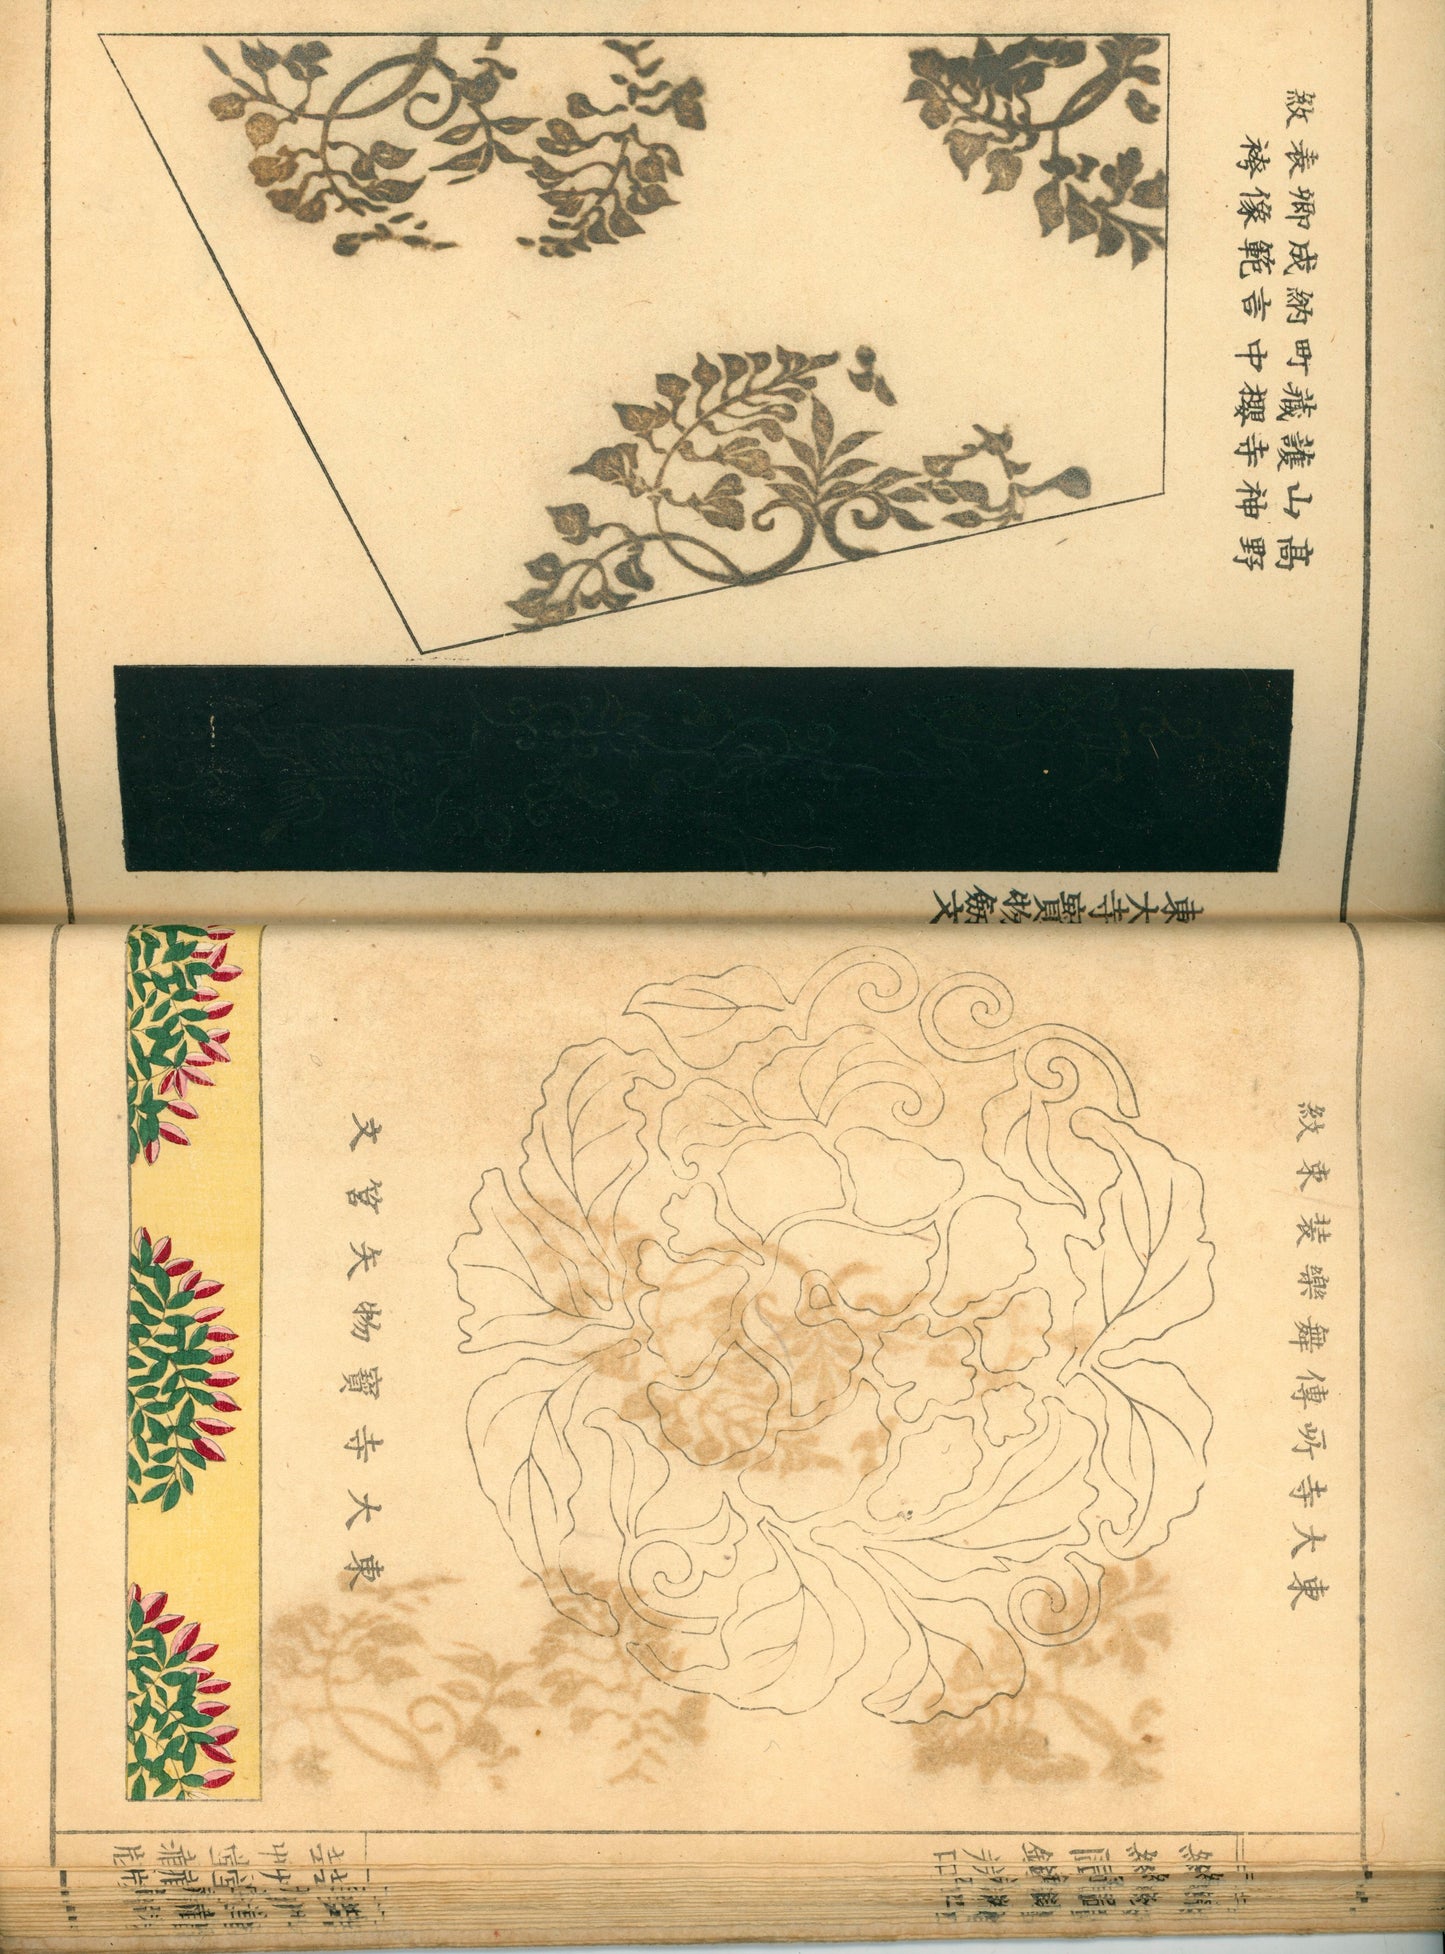 高野山神護寺藏櫻町中納言成範卿像表袴紋
東大寺寶物劔文
東大寺所傳舞樂装束紋
東大寺寶物矢筥文